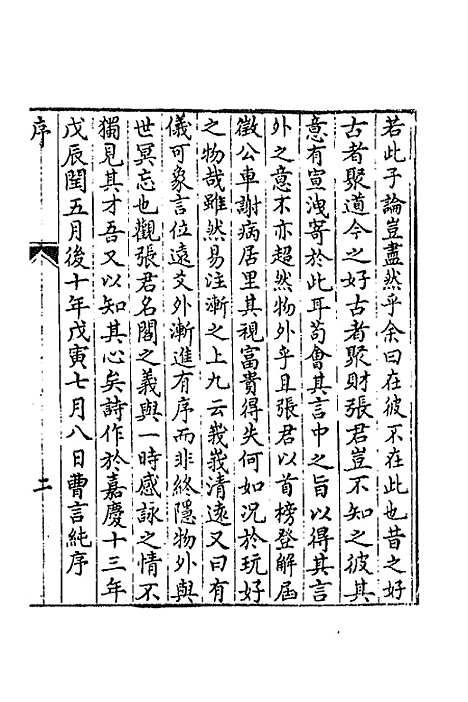 若此子論豈盡然乎余曰在彼不在此也昔之好
古者聚道今之好古者聚財張君豈不知之彼其
意有宣洩寄於此耳苟會其言中之旨以得其言
外之意不亦超然物外乎且張君以首榜登解屆
徵公車謝病居里其視富貴得失何如況於玩好
之物哉雖然易注漸之上九云峩峩清遠又曰有
儀可象言位遠爻外漸進有序而非終隱物外與
世冥忘也觀張君名閣之義與一時感詠之情不
獨見其才吾又以知其心矣詩作於嘉慶十三年
戊辰閏五月後十年戊寅七月八日曹言純序
序
二